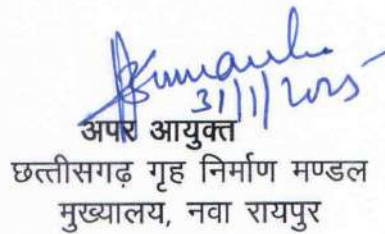 31/1/2025
अपर आयुक्त
छत्तीसगढ़ गृह निर्माण मण्डल
मुख्यालय, नवा रायपुर